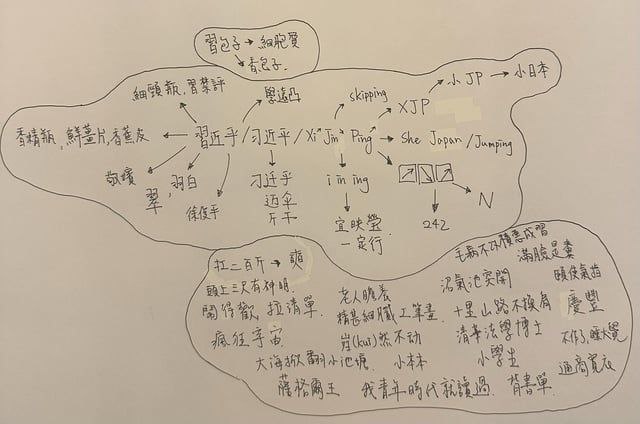 習包子 → 細胞質
香包子
細頸瓶, 習禁評
學遠凸
skipping
XJP → 小JP → 小日本
香精瓶, 鮮薑片, 香蕉皮
習近平/习近平/Xi Jin Ping
She Japan/Jumping
敬
翠, 羽白
徐俊平
刁近乎
i in ing
N
宜映瑩
一定行
242
扛二百斤 → 奭
頭上三尺有神明
開得歡 拉清單
瘋狂宇宙
大海掀翻小池塘
薩格爾王
老人贍養
精甚細膩 工筆畫
岿(kui)然不动
小本本
我青年時代就讀過
沼氣池突開
十里山路不換肩
清華法學博士
小學生
背書單
毛病不好積惡成習
滿臉是糞
頤使氣指
慶豐
不作了, 睡大覺
通商寬衣